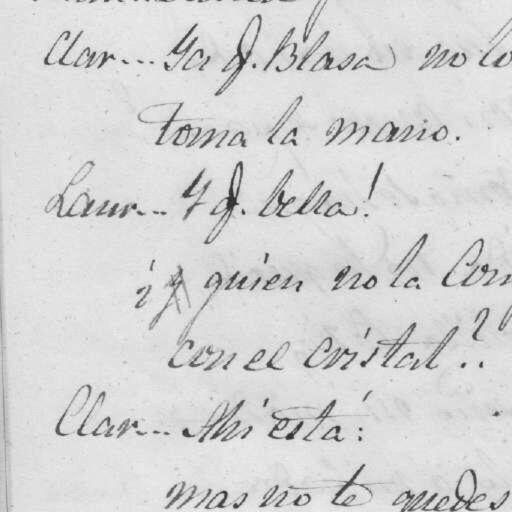 Clar... Ya q. Blasa no lo
toma la mano.
Laur... Y q. bella!
¿y quien no la Com
con el cristal?
Clar... Ahi está:
mas no te quedes